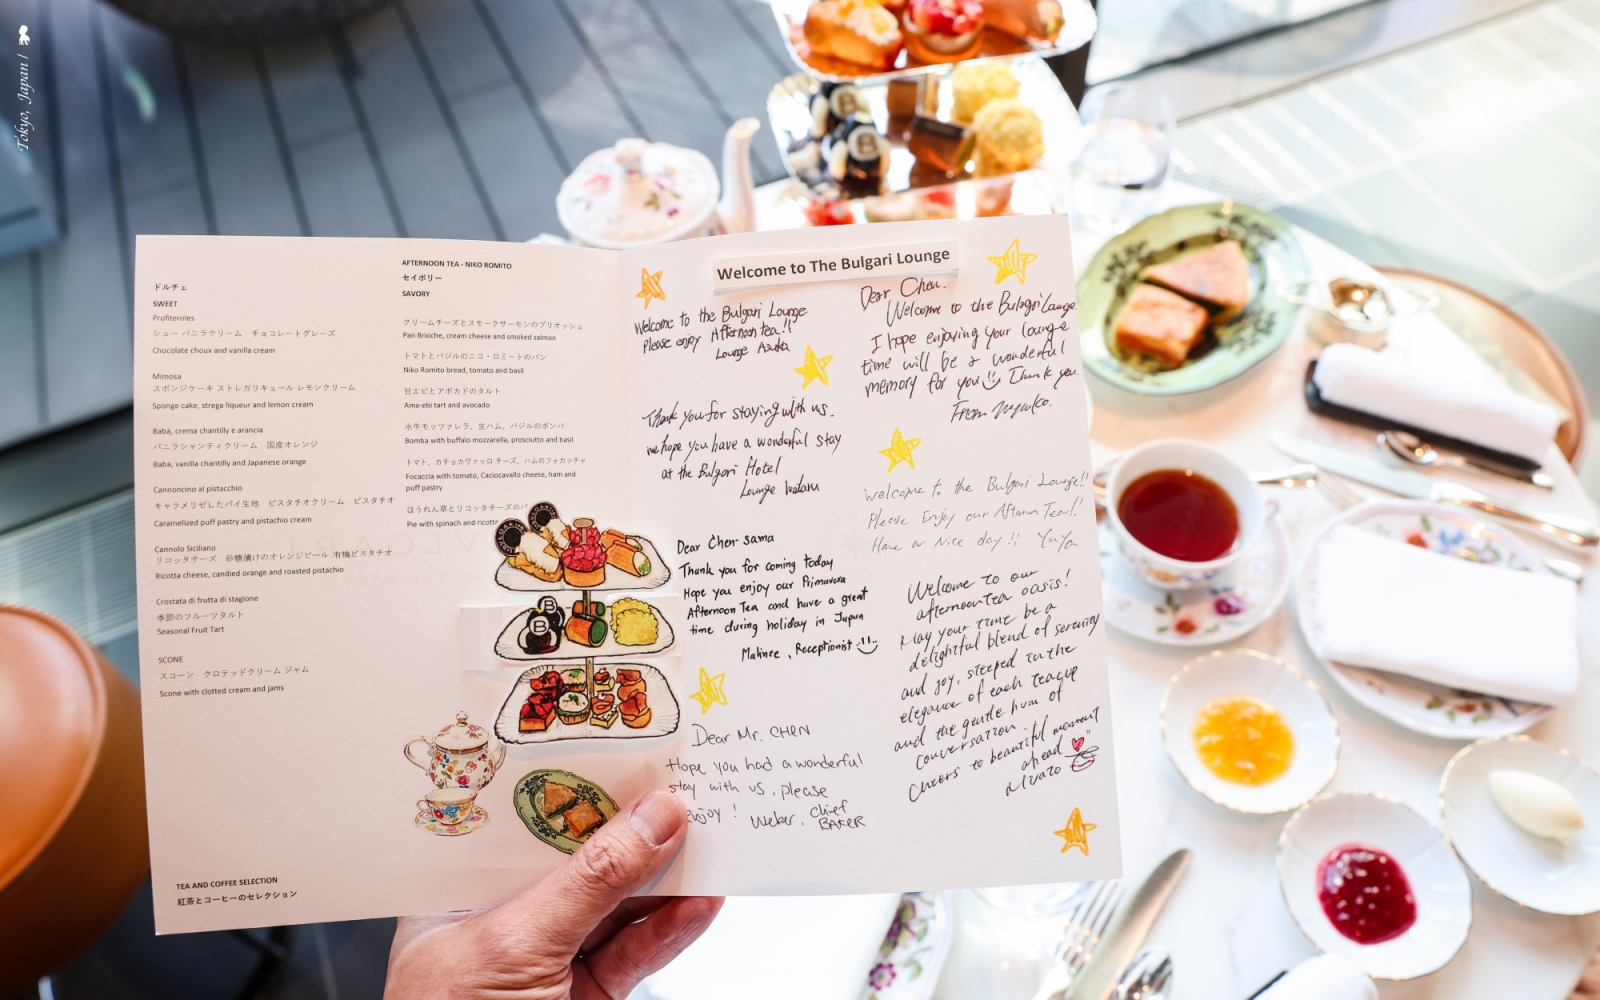 Tokyo, Japan /
ドルチェ
SWEET
Profiteroles
シュー バニラクリーム チョコレートグレーズ
Chocolate choux and vanilla cream
Mimosa
スポンジケーキ ストレガリキュール レモンクリーム
Sponge cake, strega liqueur and lemon cream
Babà, crema chantilly e arancia
バニラシャンティクリーム 国産オレンジ
Baba, vanilla chantilly and Japanese orange
Cannoncino al pistacchio
キャラメリゼしたパイ生地 ピスタチオクリーム ピスタチオ
Caramelized puff pastry and pistachio cream
Cannolo Siciliano
リコッタチーズ 砂糖漬けのオレンジピール 有機ピスタチオ
Ricotta cheese, candied orange and roasted pistachio
Crostata di frutta di stagione
季節のフルーツタルト
Seasonal Fruit Tart
SCONE
スコーン クロテッドクリーム ジャム
Scone with clotted cream and jams
TEA AND COFFEE SELECTION
紅茶とコーヒーのセレクション
AFTERNOON TEA - NIKO ROMITO
セイボリー
SAVORY
クリームチーズとスモークサーモンのブリオッシュ
Pan Brioche, cream cheese and smoked salmon
トマトとバジルのニコ・ロミートのパン
Niko Romito bread, tomato and basil
甘エビとアボカドのタルト
Ama-ebi tart and avocado
水牛モッツァレラ、生ハム、バジルのボンバ
Bomba with buffalo mozzarella, prosciutto and basil
トマト、カチョカヴァッロ チーズ、ハムのフォカッチャ
Focaccia with tomato, Caciocavallo cheese, ham and
puff pastry
ほうれん草とリコッタチーズの
Pie with spinach and ricotta
Welcome to The Bulgari Lounge
Welcome to the Bulgari Lounge
Please enjoy Afternoon tea!!
Lounge Asuka
Thank you for staying with us.
we hope you have a wonderful stay
at the Bulgari Hotel
Lounge Wataru
Dear Chen-sama
Thank you for coming today
Hope you enjoy our Primavera
Afternoon Tea and have a great
time during holiday in Japan
Malinee, Receptionist
Dear Mr. CHEN
Hope you had a wonderful
stay with us, please
enjoy! Weber, Chief
BAKER
Dear Chen.
Welcome to the Bulagri Lounge.
I hope enjoying your lounge
time will be a wonderful
memory for you Thank you.
From
Welcome to the Bulgari Lounge!!
Please Enjoy our Afternoon Tea!!
Have a Nice day!! YuYa
Welcome to our
afternoon tea oasis!
May your time be a
delightful blend of serenity
and joy, steeped in the
elegance of each teacup
and the gentle hum of
conversation.
Cheers to beautiful moment
ahead
B
B
B
B